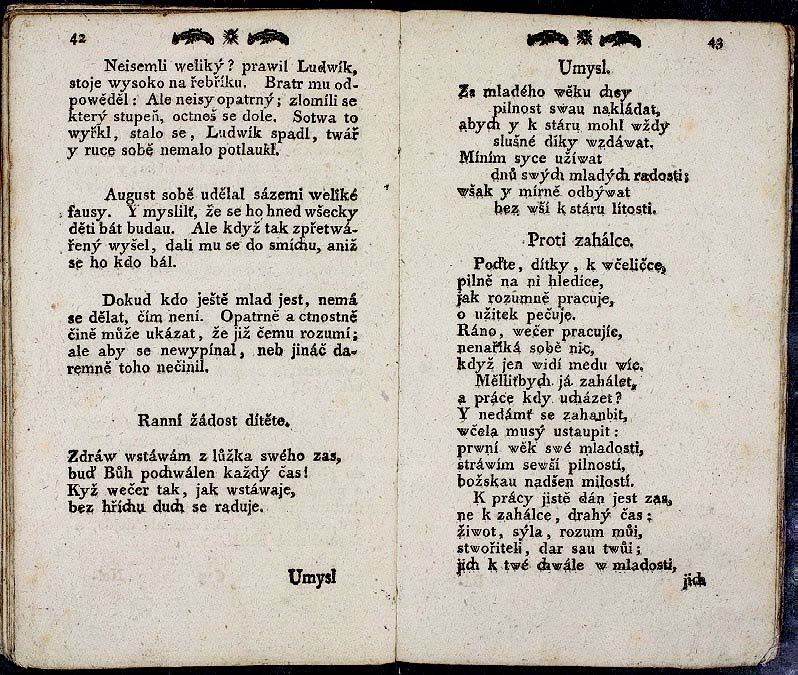 42
Neisemli weliký? prawil Ludwík,
stoje wysoko na řebříku. Bratr mu od-
powěděl: Ale neisy opatrný; zlomíli se
který stupeň, octneš se dole. Sotwa to
wyřkl, stalo se, Ludwík spadl, twář
y ruce sobě nemalo potlaukl.
August sobě udělal sázemi weliké
fausy. Y myslilť, že se ho hned wšecky
děti bát budau. Ale když tak zpřetwá-
řený wyšel, dali mu se do smíchu, aniž
se ho kdo bál.
Dokud kdo ještě mlad jest, nemá
se dělat, čím není. Opatrně a ctnostně
čině může ukázat, že již čemu rozumí;
ale aby se newypínal, neb jináč da-
remně toho nečinil.
Ranní žádost dítěte.
Zdráw wstáwám z lůžka swého zas,
buď Bůh pochwálen každý čas!
Kyž wečer tak, jak wstáwaje,
bez hříchu duch se raduje.
Umysl
43
Umysl.
Za mladého wěku chcy
pilnost swau nakládat,
abych y k stáru mohl wždy
slušné díky wzdáwat.
Míním syce užíwat
dnů swých mladých radosti;
wšak y mírně odbýwat
bez wší k stáru lítosti.
Proti zahálce.
Poďte, dítky, k wčeličce,
pilně na ni hledíce,
jak rozumně pracuje,
o užitek pečuje.
Ráno, wečer pracujíc,
nenaříká sobě nic,
když jen widí medu wíc.
Mělližbych já zahálet,
a práce kdy ucházet?
Y nedámť se zahanbit,
wčela musý ustaupit:
prwní wěk swé mladosti,
stráwím sewší pilností,
božskau nadšen milostí.
K prácy jistě dán jest zas,
ne k zahálce, drahý čas:
žiwot, sýla, rozum můi,
stwořiteli, dar sau twůi;
jich k twé chwále w mladosti,
jich